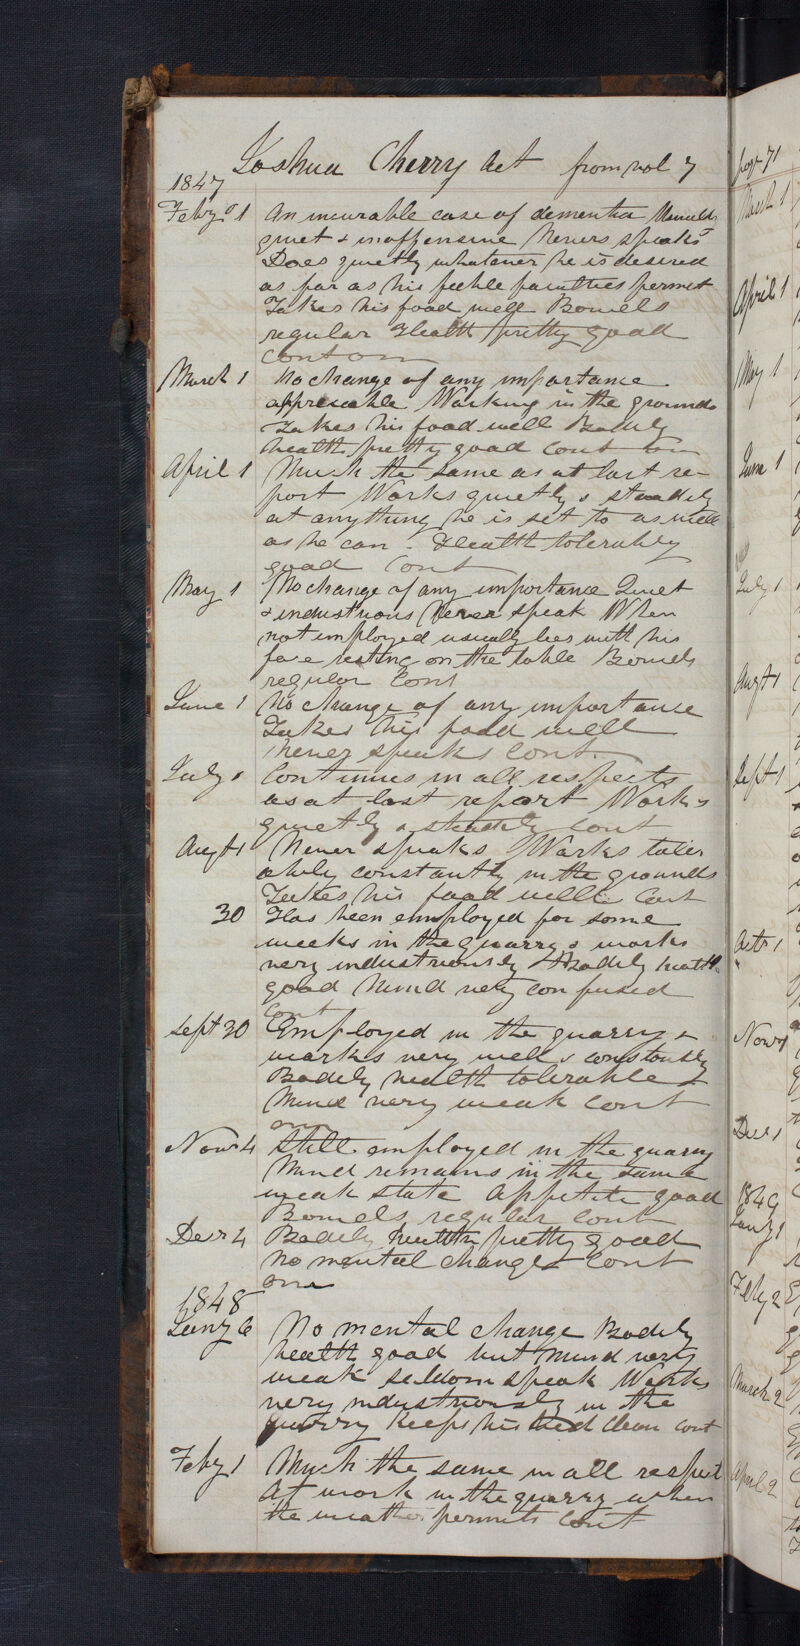 Joshua Cherry Aet from vol 7
1847
Feby 1 An incurable case of dementia Usually
quiet & inoffensive Never speaks
Does quietly whatever he is desired
as far as his feeble faculties permit
Takes his food well Bowels
regular Health pretty good
Cont om
March 1 No change of any importance
appreciable Working in the grounds
Takes his food well Bodily
health pretty good Cont om
April 1 Much the same as at last re-
port Works quietly & steadily
at anything he is set to as well
as he can - Health tolerably
good Cont
May 1 No change of any importance Quiet
& industrious Never speak When
not employed usually lies with his
face resting on the table Bowels
regular Cont
June 1 No change of any importance
Takes his food well
never speaks Cont.
July 1 Continues in all respects
as at last report Works
quietly & steadily Cont
Augt 1 Never speaks Works toler
ably constantly in the grounds
Takes his food well Cont
30 Has been employed for some
weeks in the quarry & works
very industriously Bodily health
good Mind very confused
Cont
Sept 30 Employed in the quarry &
works very well & constantly
Bodily health tolerable &
Mind very weak Cont
om
Novr 4 Still employed in the quarry
Mind remains in the same
weak state Appetite good
Bowels regular Cont
Decr 4 Bodily health pretty good
No mental change Cont
om
1848
Jany 6 No mental change Bodily
health good but Mind very
weak seldom speak Works
very industriously in the
quarry Keeps his bed clean Cont
Feby 1 Much the same in all respect
At work in the quarry when
the weather permits Cont
March 1
April 1
May 1
June 1
July 1
Augt 1
Sept 1
Octr 1
Novr 1
Decr 1
1849
Jany 1
Feby 2
March 2
April 2